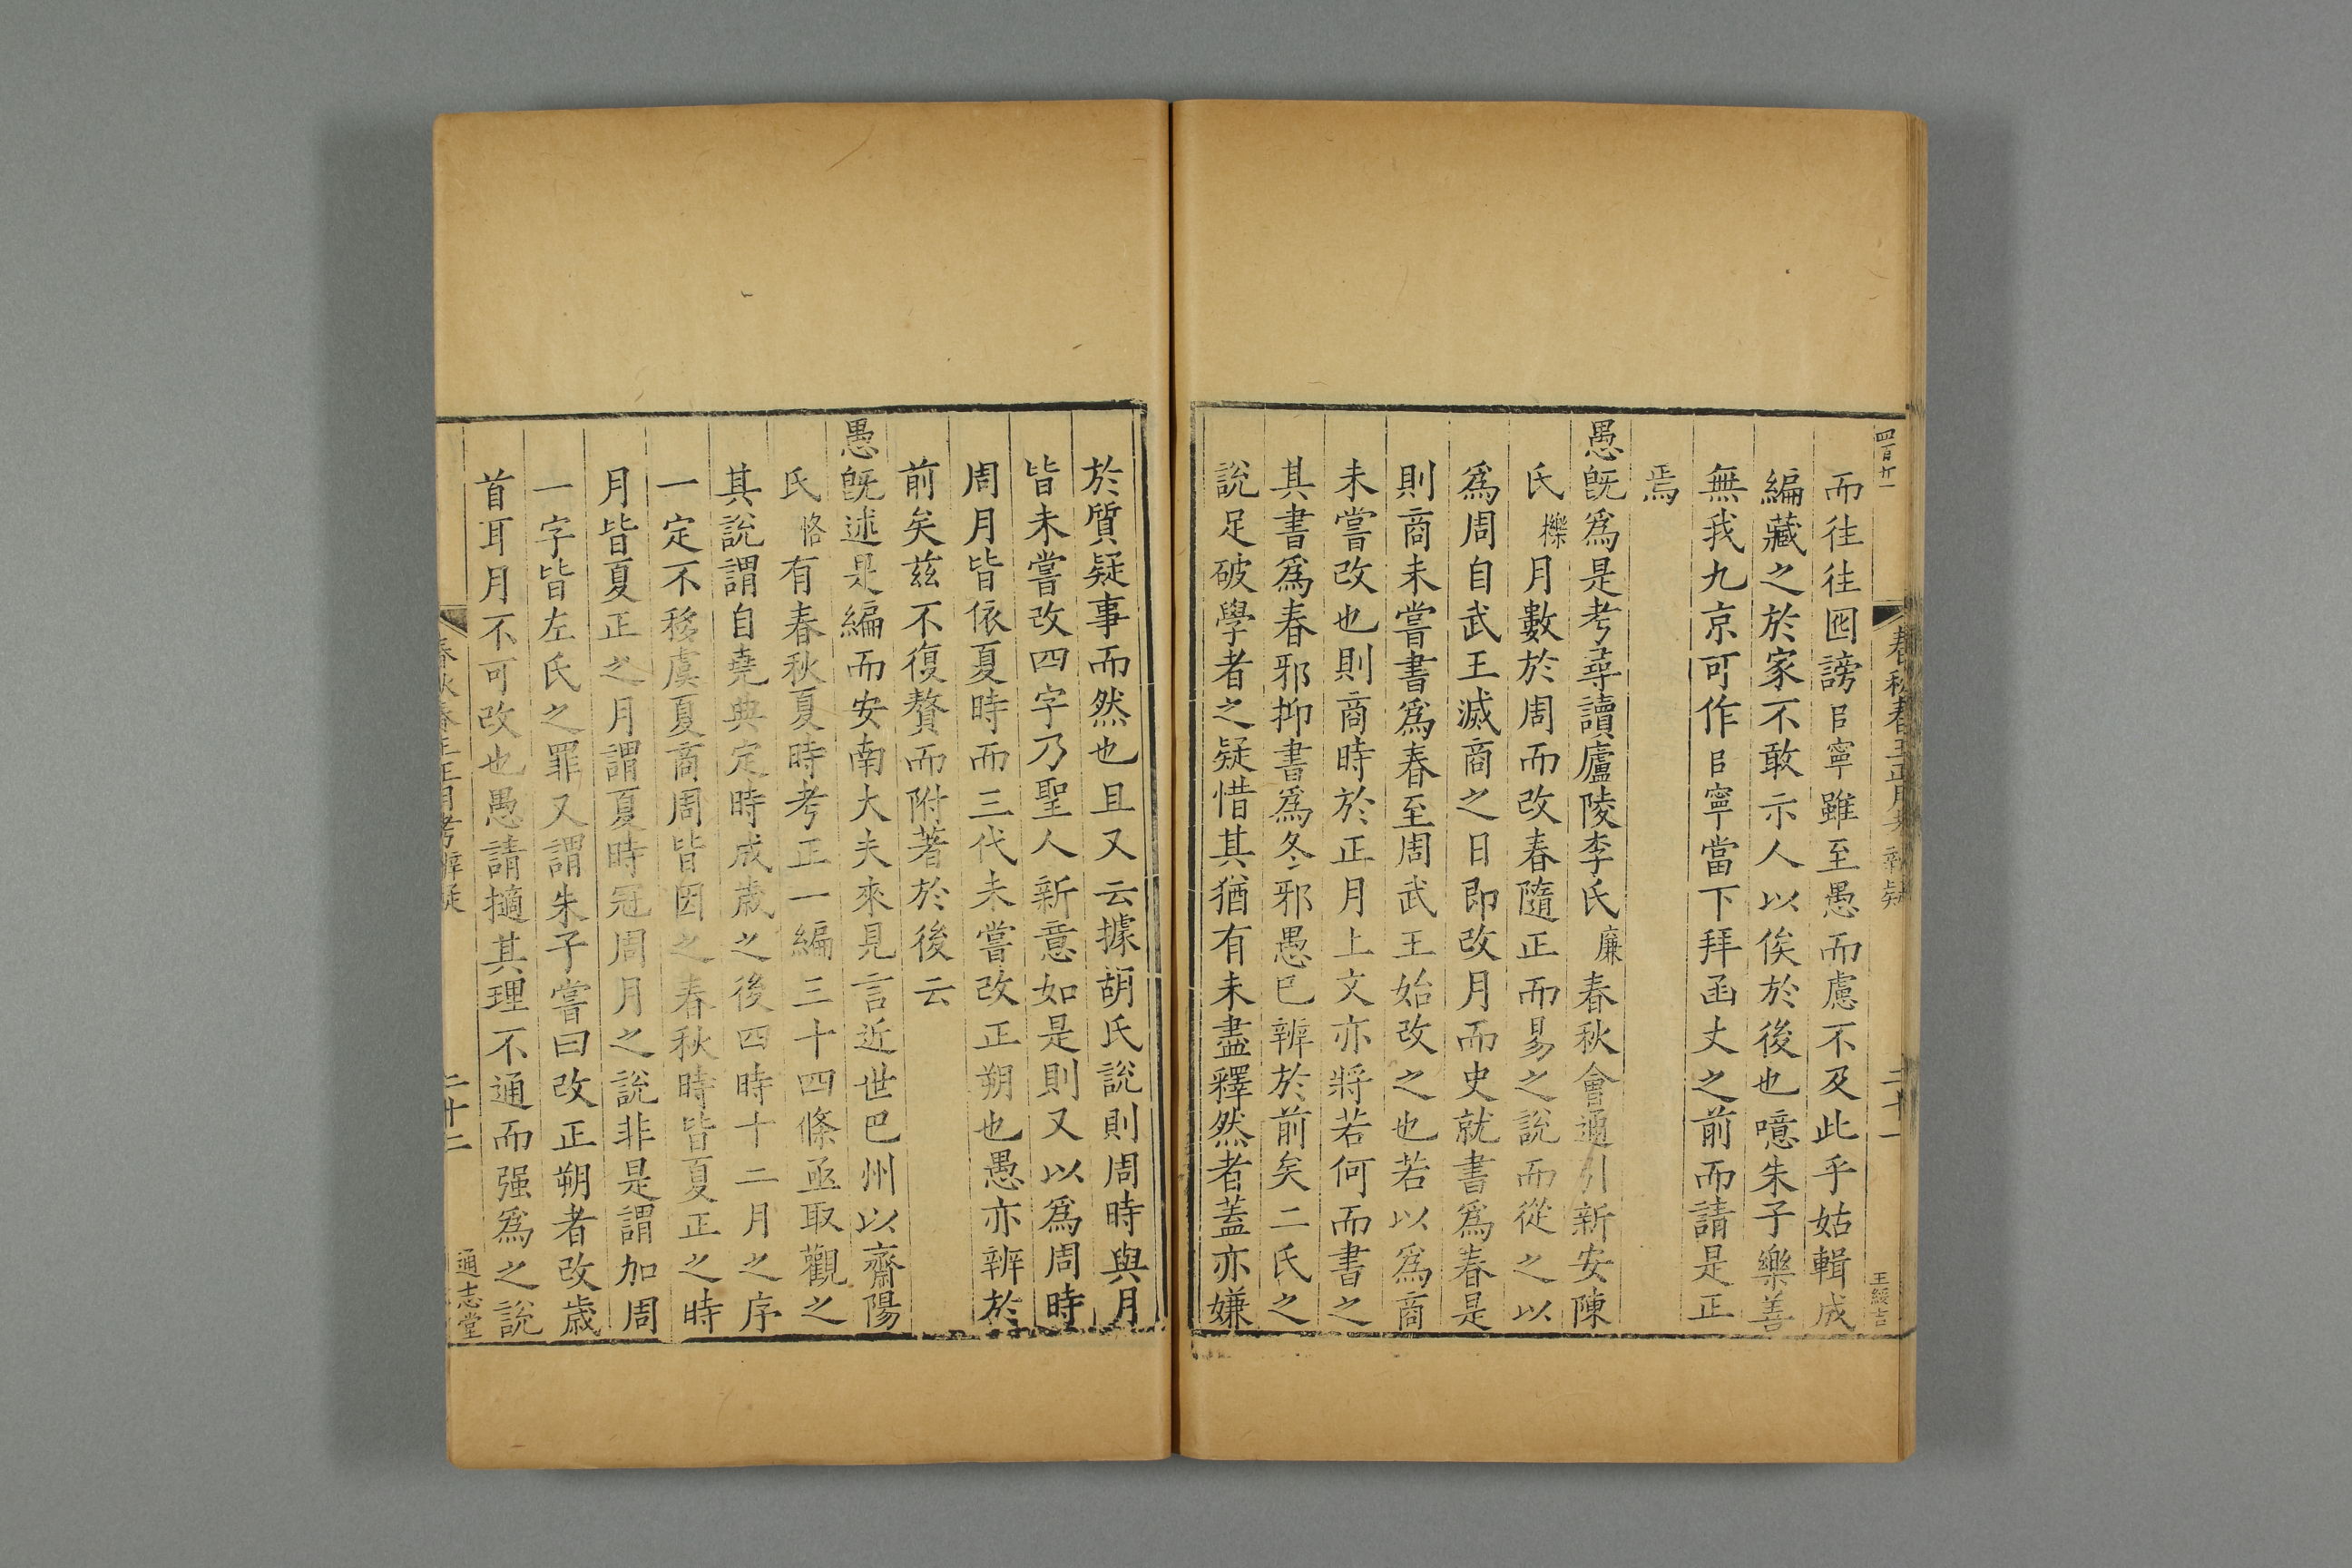 四百廿一
春秋春王正月考 辨疑
二十一
王綏吉
而往往囮謗㠯寧雖至愚而慮不及此乎姑輯成
編藏之於家不敢示人以俟於後也噫朱子樂善
無我九京可作㠯寧當下拜函丈之前而請是正
焉
愚旣爲是考尋讀廬陵李氏廉春秋會通引新安陳
氏櫟月數於周而改春隨正而易之說而從之以
爲周自武王滅商之日即改月而史就書爲春是
則商未嘗書爲春至周武王始改之也若以爲商
未嘗改也則商時於正月上文亦將若何而書之
其書爲春邪抑書爲冬邪愚已辨於前矣二氏之
說足破學者之疑惜其猶有未盡釋然者蓋亦嫌
於質疑事而然也且又云據胡氏說則周時與月
皆未嘗改四字乃聖人新意如是則又以爲周時
周月皆依夏時而三代未嘗改正朔也愚亦辨於
前矣茲不復贅而附著於後云
愚旣述是編而安南大夫來見言近世巴州以齋陽
氏恪有春秋夏時考正一編三十四條亟取觀之
其說謂自堯典定時成歲之後四時十二月之序
一定不移虞夏商周皆因之春秋時皆夏正之時
月皆夏正之月謂夏時冠周月之說非是謂加周
一字皆左氏之罪又謂朱子嘗曰改正朔者改歲
首耳月不可改也愚請擿其理不通而强爲之說
春秋春王正月考辨疑
二十二
通志堂